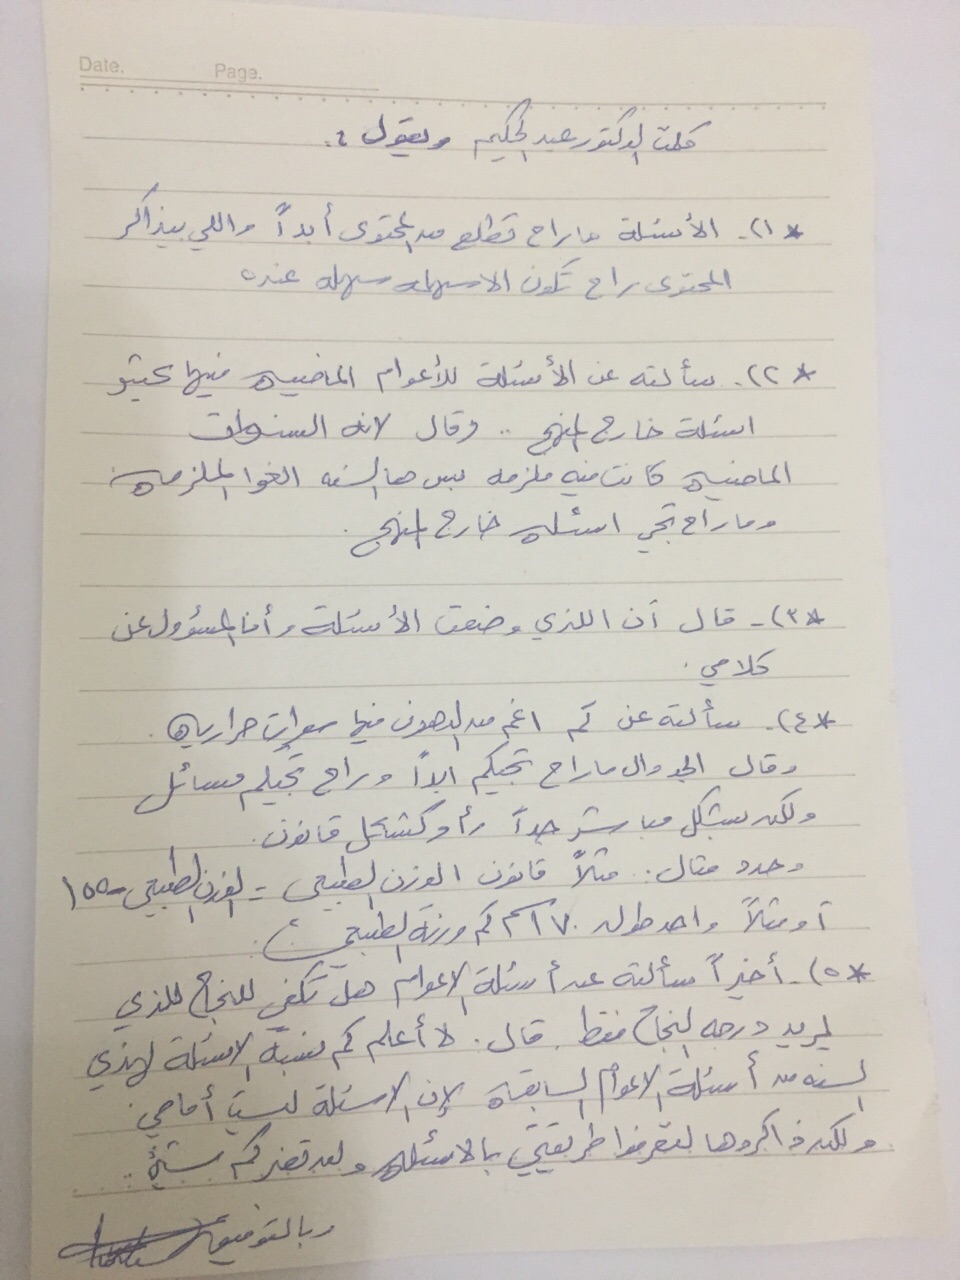 Date. Page.
كلمت الدكتور عبدالحكيم ويقول :.
*١)- الأسئلة ماراح تطلع من المحتوى أبداً واللي بيذاكر
المحتوى راح تكون الاسئله سهله عنده
*٢)- سألته عن الأسئلة للأعوام الماضيه فيها
اسئلة خارج المنهج .. وقال لانه السنوات
الماضيه كانت فيه ملزمه بس هالسنه الغوا الملزمه
وماراح تجي اسئله خارج المنهج .
*٣)- قال أنا اللذي وضعت الأسئلة وأنا المسؤول عن
كلامي .
*٤)- سألته عن كم غم من الدهون فيها سعرات حراريه .
وقال الجدوال ماراح تجيكم ابداً وراح تجيكم مسائل
ولكن بشكل مباشر جداً أو كشكل قانون.
وحدد مثال : مثلاً قانون الوزن الطبيعي = الوزن الطبيعي - ١٥٥
أو مثلاً واحد طوله ١٧٠سم كم وزنه الطبيعي ؟ .
*٥)- أخيراً سألته عن أسئلة الاعوام هل تكفي للنجاح للذي
يريد درجه النجاح فقط . قال . لا أعلم كم نسبة الاسئلة لهذي
السنه من أسئلة الاعوام السابقه لإن الاسئلة ليست أمامي .
ولكن ذاكروها لتعرفوا طريقتي بالاسئله ولن تضركم بشئ ..
وبالتوفيق